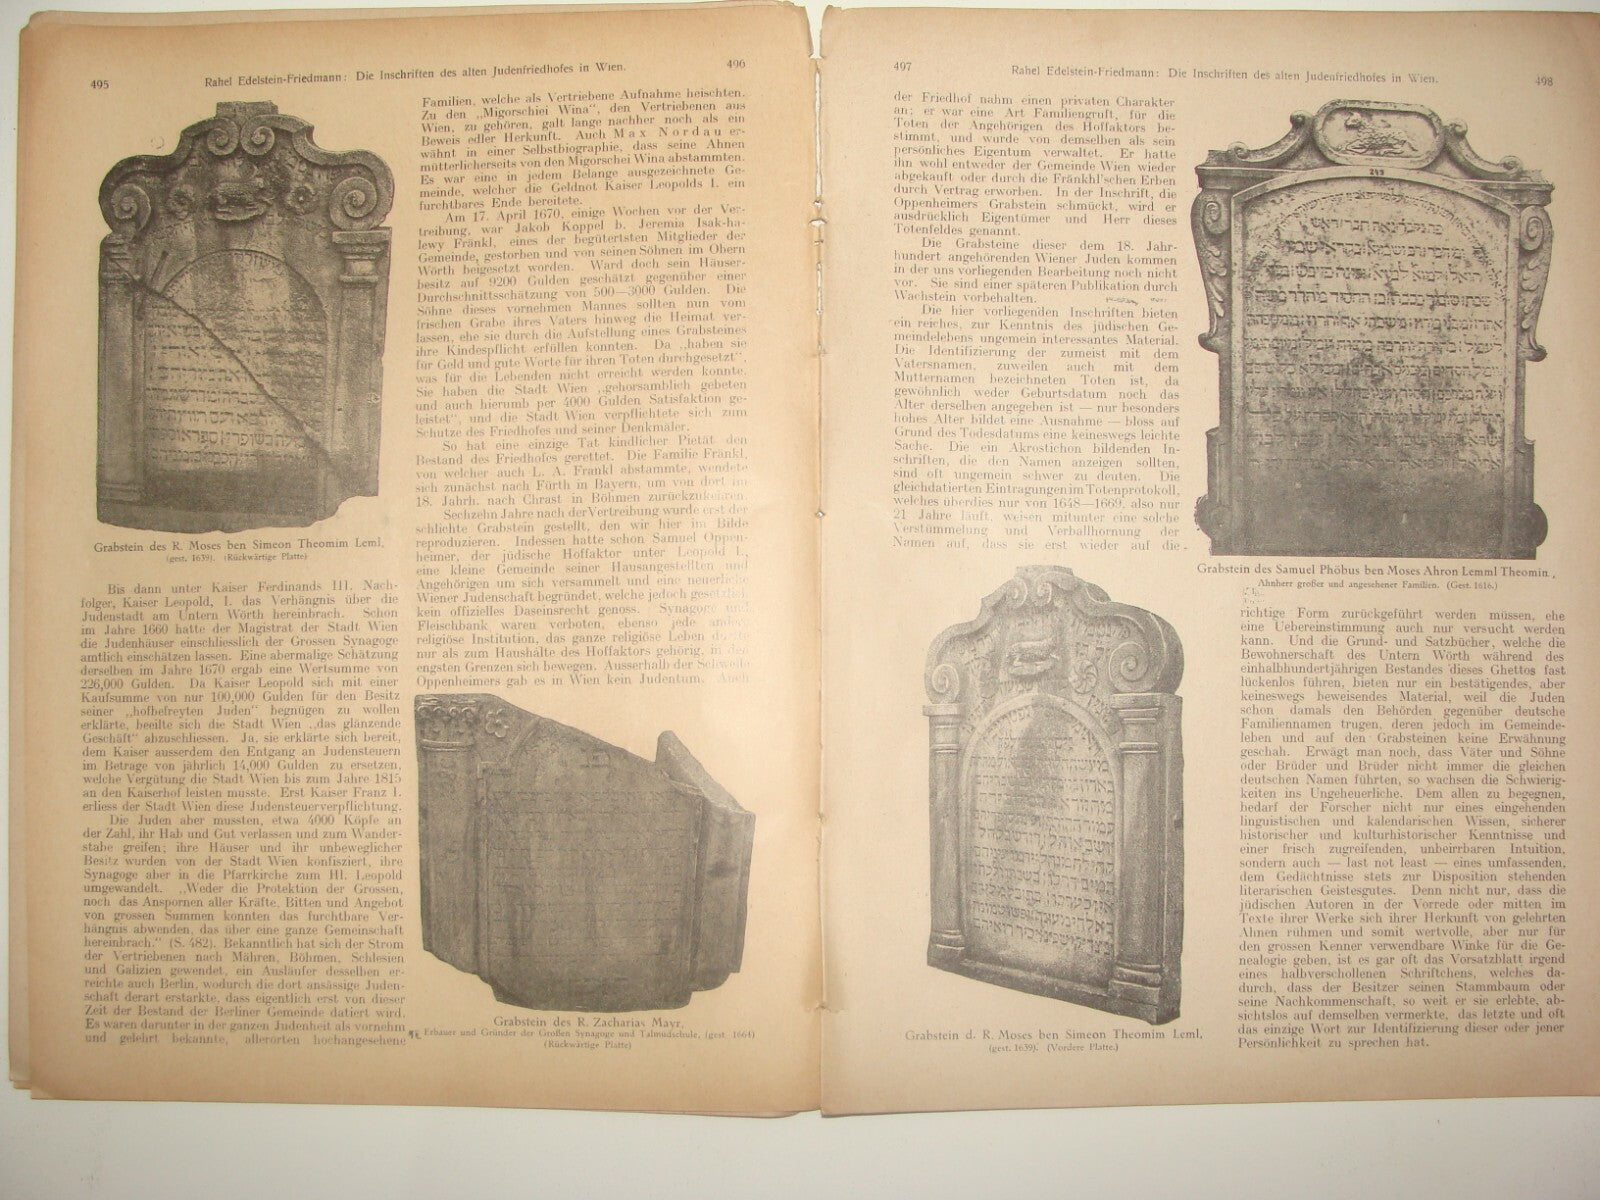 495
Rahel Edelstein-Friedmann: Die Inschriften des alten Judenfriedhofes in Wien.
496
Grabstein des R. Moses ben Simeon Theomim Leml,
(gest. 1639). (Rückwärtige Platte)
Bis dann unter Kaiser Ferdinands III. Nach-
folger, Kaiser Leopold, I. das Verhängnis über die
Judenstadt am Untern Wörth hereinbrach. Schon
im Jahre 1660 hatte der Magistrat der Stadt Wien
die Judenhäuser einschliesslich der Grossen Synagoge
amtlich einschätzen lassen. Eine abermalige Schätzung
derselben im Jahre 1670 ergab eine Wertsumme von
226,000 Gulden. Da Kaiser Leopold sich mit einer
Kaufsumme von nur 100,000 Gulden für den Besitz
seiner „hofbefreyten Juden" begnügen zu wollen
erklärte, beeilte sich die Stadt Wien „das glänzende
Geschäft" abzuschliessen. Ja, sie erklärte sich bereit,
dem Kaiser ausserdem den Entgang an Judensteuern
im Betrage von jährlich 14,000 Gulden zu ersetzen,
welche Vergütung die Stadt Wien bis zum Jahre 1815
an den Kaiserhof leisten musste. Erst Kaiser Franz I.
erliess der Stadt Wien diese Judensteuerverpflichtung.
Die Juden aber mussten, etwa 4000 Köpfe an
der Zahl, ihr Hab und Gut verlassen und zum Wander-
stabe greifen; ihre Häuser und ihr unbeweglicher
Besitz wurden von der Stadt Wien konfisziert, ihre
Synagoge aber in die Pfarrkirche zum Hl. Leopold
umgewandelt. „Weder die Protektion der Grossen,
noch das Anspornen aller Kräfte, Bitten und Angebot
von grossen Summen konnten das furchtbare Ver-
hängnis abwenden, das über eine ganze Gemeinschaft
hereinbrach." (S. 482). Bekanntlich hat sich der Strom
der Vertriebenen nach Mähren, Böhmen, Schlesien
und Galizien gewendet, ein Ausläufer desselben er-
reichte auch Berlin, wodurch die dort ansässige Juden-
schaft derart erstarkte, dass eigentlich erst von dieser
Zeit der Bestand der Berliner Gemeinde datiert wird.
Es waren darunter in der ganzen Judenheit als vornehm
und gelehrt bekannte, allerorten hochangesehene
Familien, welche als Vertriebene Aufnahme heischten.
Zu den „Migorschiei Wina", den Vertriebenen aus
Wien, zu gehören, galt lange nachher noch als ein
Beweis edler Herkunft. Auch Max Nordau er-
wähnt in einer Selbstbiographie, dass seine Ahnen
mütterlicherseits von den Migorschei Wina abstammten.
Es war eine in jedem Belange ausgezeichnete Ge-
meinde, welcher die Geldnot Kaiser Leopolds I. ein
furchtbares Ende bereitete.
Am 17. April 1670, einige Wochen vor der Ver-
treibung, war Jakob Koppel b. Jeremia Isak-ha-
lewy Fränkl, eines der begütertsten Mitglieder der
Gemeinde, gestorben und von seinen Söhnen im Obern
Wörth beigesetzt worden. Ward doch sein Häuser-
besitz auf 9200 Gulden geschätzt gegenüber einer
Durchschnittsschätzung von 500—3000 Gulden. Die
Söhne dieses vornehmen Mannes sollten nun vom
frischen Grabe ihres Vaters hinweg die Heimat ver-
lassen, ehe sie durch die Aufstellung eines Grabsteines
ihre Kindespflicht erfüllen konnten. Da „haben sie
für Geld und gute Worte für ihren Toten durchgesetzt",
was für die Lebenden nicht erreicht werden konnte.
Sie haben die Stadt Wien „gehorsamblich gebeten
und auch hierumb per 4000 Gulden Satisfaktion ge-
leistet", und die Stadt Wien verpflichtete sich zum
Schutze des Friedhofes und seiner Denkmäler.
So hat eine einzige Tat kindlicher Pietät den
Bestand des Friedhofes gerettet. Die Familie Fränkl,
von welcher auch L. A. Frankl abstammte, wendete
sich zunächst nach Fürth in Bayern, um von dort im
18. Jahrh. nach Chrast in Böhmen zurückzukehren.
Sechzehn Jahre nach der Vertreibung wurde erst der
schlichte Grabstein gestellt, den wir hier im Bilde
reproduzieren. Indessen hatte schon Samuel Oppen-
heimer, der jüdische Hoffaktor unter Leopold I.,
eine kleine Gemeinde seiner Hausangestellten und
Angehörigen um sich versammelt und eine neuerliche
Wiener Judenschaft begründet, welche jedoch gesetzlich
kein offizielles Daseinsrecht genoss. Synagoge und
Fleischbank waren verboten, ebenso jede andere
religiöse Institution, das ganze religiöse Leben durfte
nur als zum Haushälte des Hoffaktors gehörig, in den
engsten Grenzen sich bewegen. Ausserhalb der Schwelle
Oppenheimers gab es in Wien kein Judentum. Auch
Grabstein des R. Zacharias Mayr,
Erbauer und Gründer der Großen Synagoge und Talmudschule, (gest. 1664)
(Rückwärtige Platte)
497
Rahel Edelstein-Friedmann: Die Inschriften des alten Judenfriedhofes in Wien.
498
der Friedhof nahm einen privaten Charakter
an; er war eine Art Familiengruft, für die
Toten der Angehörigen des Hoffaktors be-
stimmt, und wurde von demselben als sein
persönliches Eigentum verwaltet. Er hatte
ihn wohl entweder der Gemeinde Wien wieder
abgekauft oder durch die Fränkhl'schen Erben
durch Vertrag erworben. In der Inschrift, die
Oppenheimers Grabstein schmückt, wird er
ausdrücklich Eigentümer und Herr dieses
Totenfeldes genannt.
Die Grabsteine dieser dem 18. Jahr-
hundert angehörenden Wiener Juden kommen
in der uns vorliegenden Bearbeitung noch nicht
vor. Sie sind einer späteren Publikation durch
Wachstein vorbehalten.
Die hier vorliegenden Inschriften bieten
ein reiches, zur Kenntnis des jüdischen Ge-
meindelebens ungemein interessantes Material.
Die Identifizierung der zumeist mit dem
Vatersnamen, zuweilen auch mit dem
Mutternamen bezeichneten Toten ist, da
gewöhnlich weder Geburtsdatum noch das
Alter derselben angegeben ist — nur besonders
hohes Alter bildet eine Ausnahme — bloss auf
Grund des Todesdatums eine keineswegs leichte
Sache. Die ein Akrostichon bildenden In-
schriften, die den Namen anzeigen sollten,
sind oft ungemein schwer zu deuten. Die
gleichdatierten Eintragungen im Totenprotokoll,
welches überdies nur von 1648—1669, also nur
21 Jahre läuft, weisen mitunter eine solche
Verstümmelung und Verballhornung der
Namen auf, dass sie erst wieder auf die
Grabstein d. R. Moses ben Simeon Theomim Leml,
(gest. 1639). (Vordere Platte.)
249
Grabstein des Samuel Phöbus ben Moses Ahron Lemml Theomin,
Ahnherr großer und angesehener Familien. (Gest. 1616.)
richtige Form zurückgeführt werden müssen, ehe
eine Uebereinstimmung auch nur versucht werden
kann. Und die Grund- und Satzbücher, welche die
Bewohnerschaft des Untern Wörth während des
einhalbhundertjährigen Bestandes dieses Ghettos fast
lückenlos führen, bieten nur ein bestätigendes, aber
keineswegs beweisendes Material, weil die Juden
schon damals den Behörden gegenüber deutsche
Familiennamen trugen, deren jedoch im Gemeinde-
leben und auf den Grabsteinen keine Erwähnung
geschah. Erwägt man noch, dass Väter und Söhne
oder Brüder und Brüder nicht immer die gleichen
deutschen Namen führten, so wachsen die Schwierig-
keiten ins Ungeheuerliche. Dem allen zu begegnen,
bedarf der Forscher nicht nur eines eingehenden
linguistischen und kalendarischen Wissen, sicherer
historischer und kulturhistorischer Kenntnisse und
einer frisch zugreifenden, unbeirrbaren Intuition,
sondern auch — last not least — eines umfassenden,
dem Gedächtnisse stets zur Disposition stehenden
literarischen Geistesgutes. Denn nicht nur, dass die
jüdischen Autoren in der Vorrede oder mitten im
Texte ihrer Werke sich ihrer Herkunft von gelehrten
Ahnen rühmen und somit wertvolle, aber nur für
den grossen Kenner verwendbare Winke für die Ge-
nealogie geben, ist es gar oft das Vorsatzblatt irgend
eines halbverschollenen Schriftchens, welches da-
durch, dass der Besitzer seinen Stammbaum oder
seine Nachkommenschaft, so weit er sie erlebte, ab-
sichtslos auf demselben vermerkte, das letzte und oft
das einzige Wort zur Identifizierung dieser oder jener
Persönlichkeit zu sprechen hat.